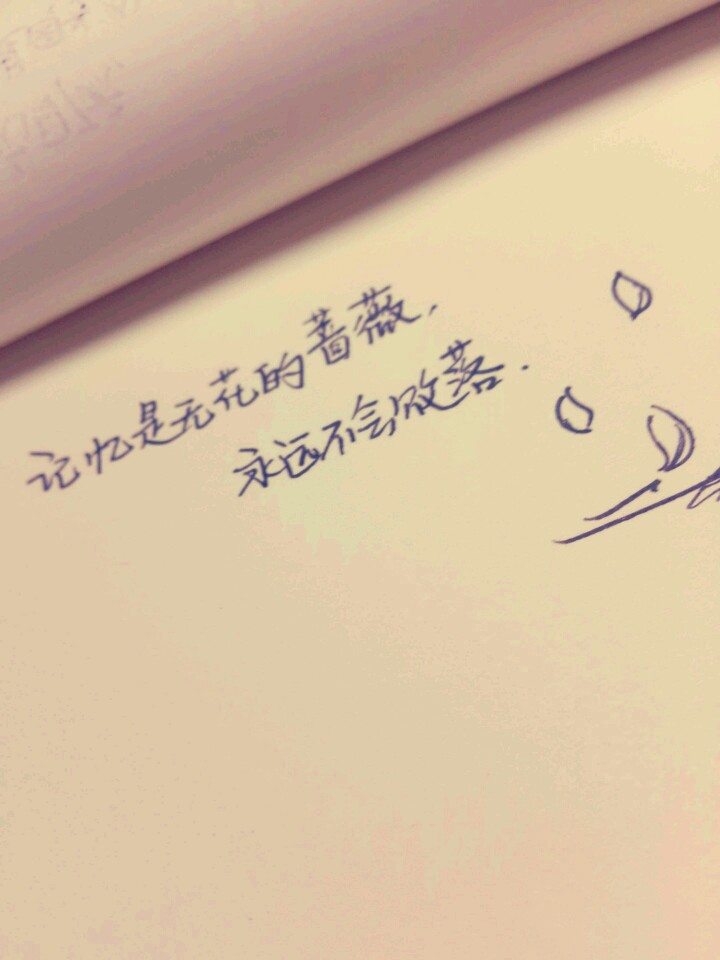 记忆是无花的蔷薇，
永远不会败落．